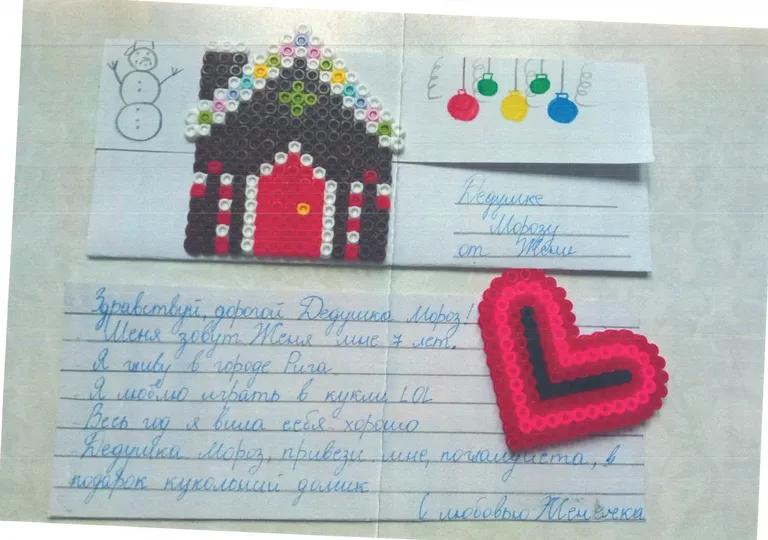 Дедушке
Морозу
от Жени
Здравствуй, дорогой Дедушка Мороз!
Меня зовут Женя мне 7 лет.
Я живу в городе Рига
Я люблю играть в куклы LOL
Весь год я вила себя хорошо
Дедушка Мороз, привези мне, пожалуйста, в
подарок куколоний домик
С любовью Женечка